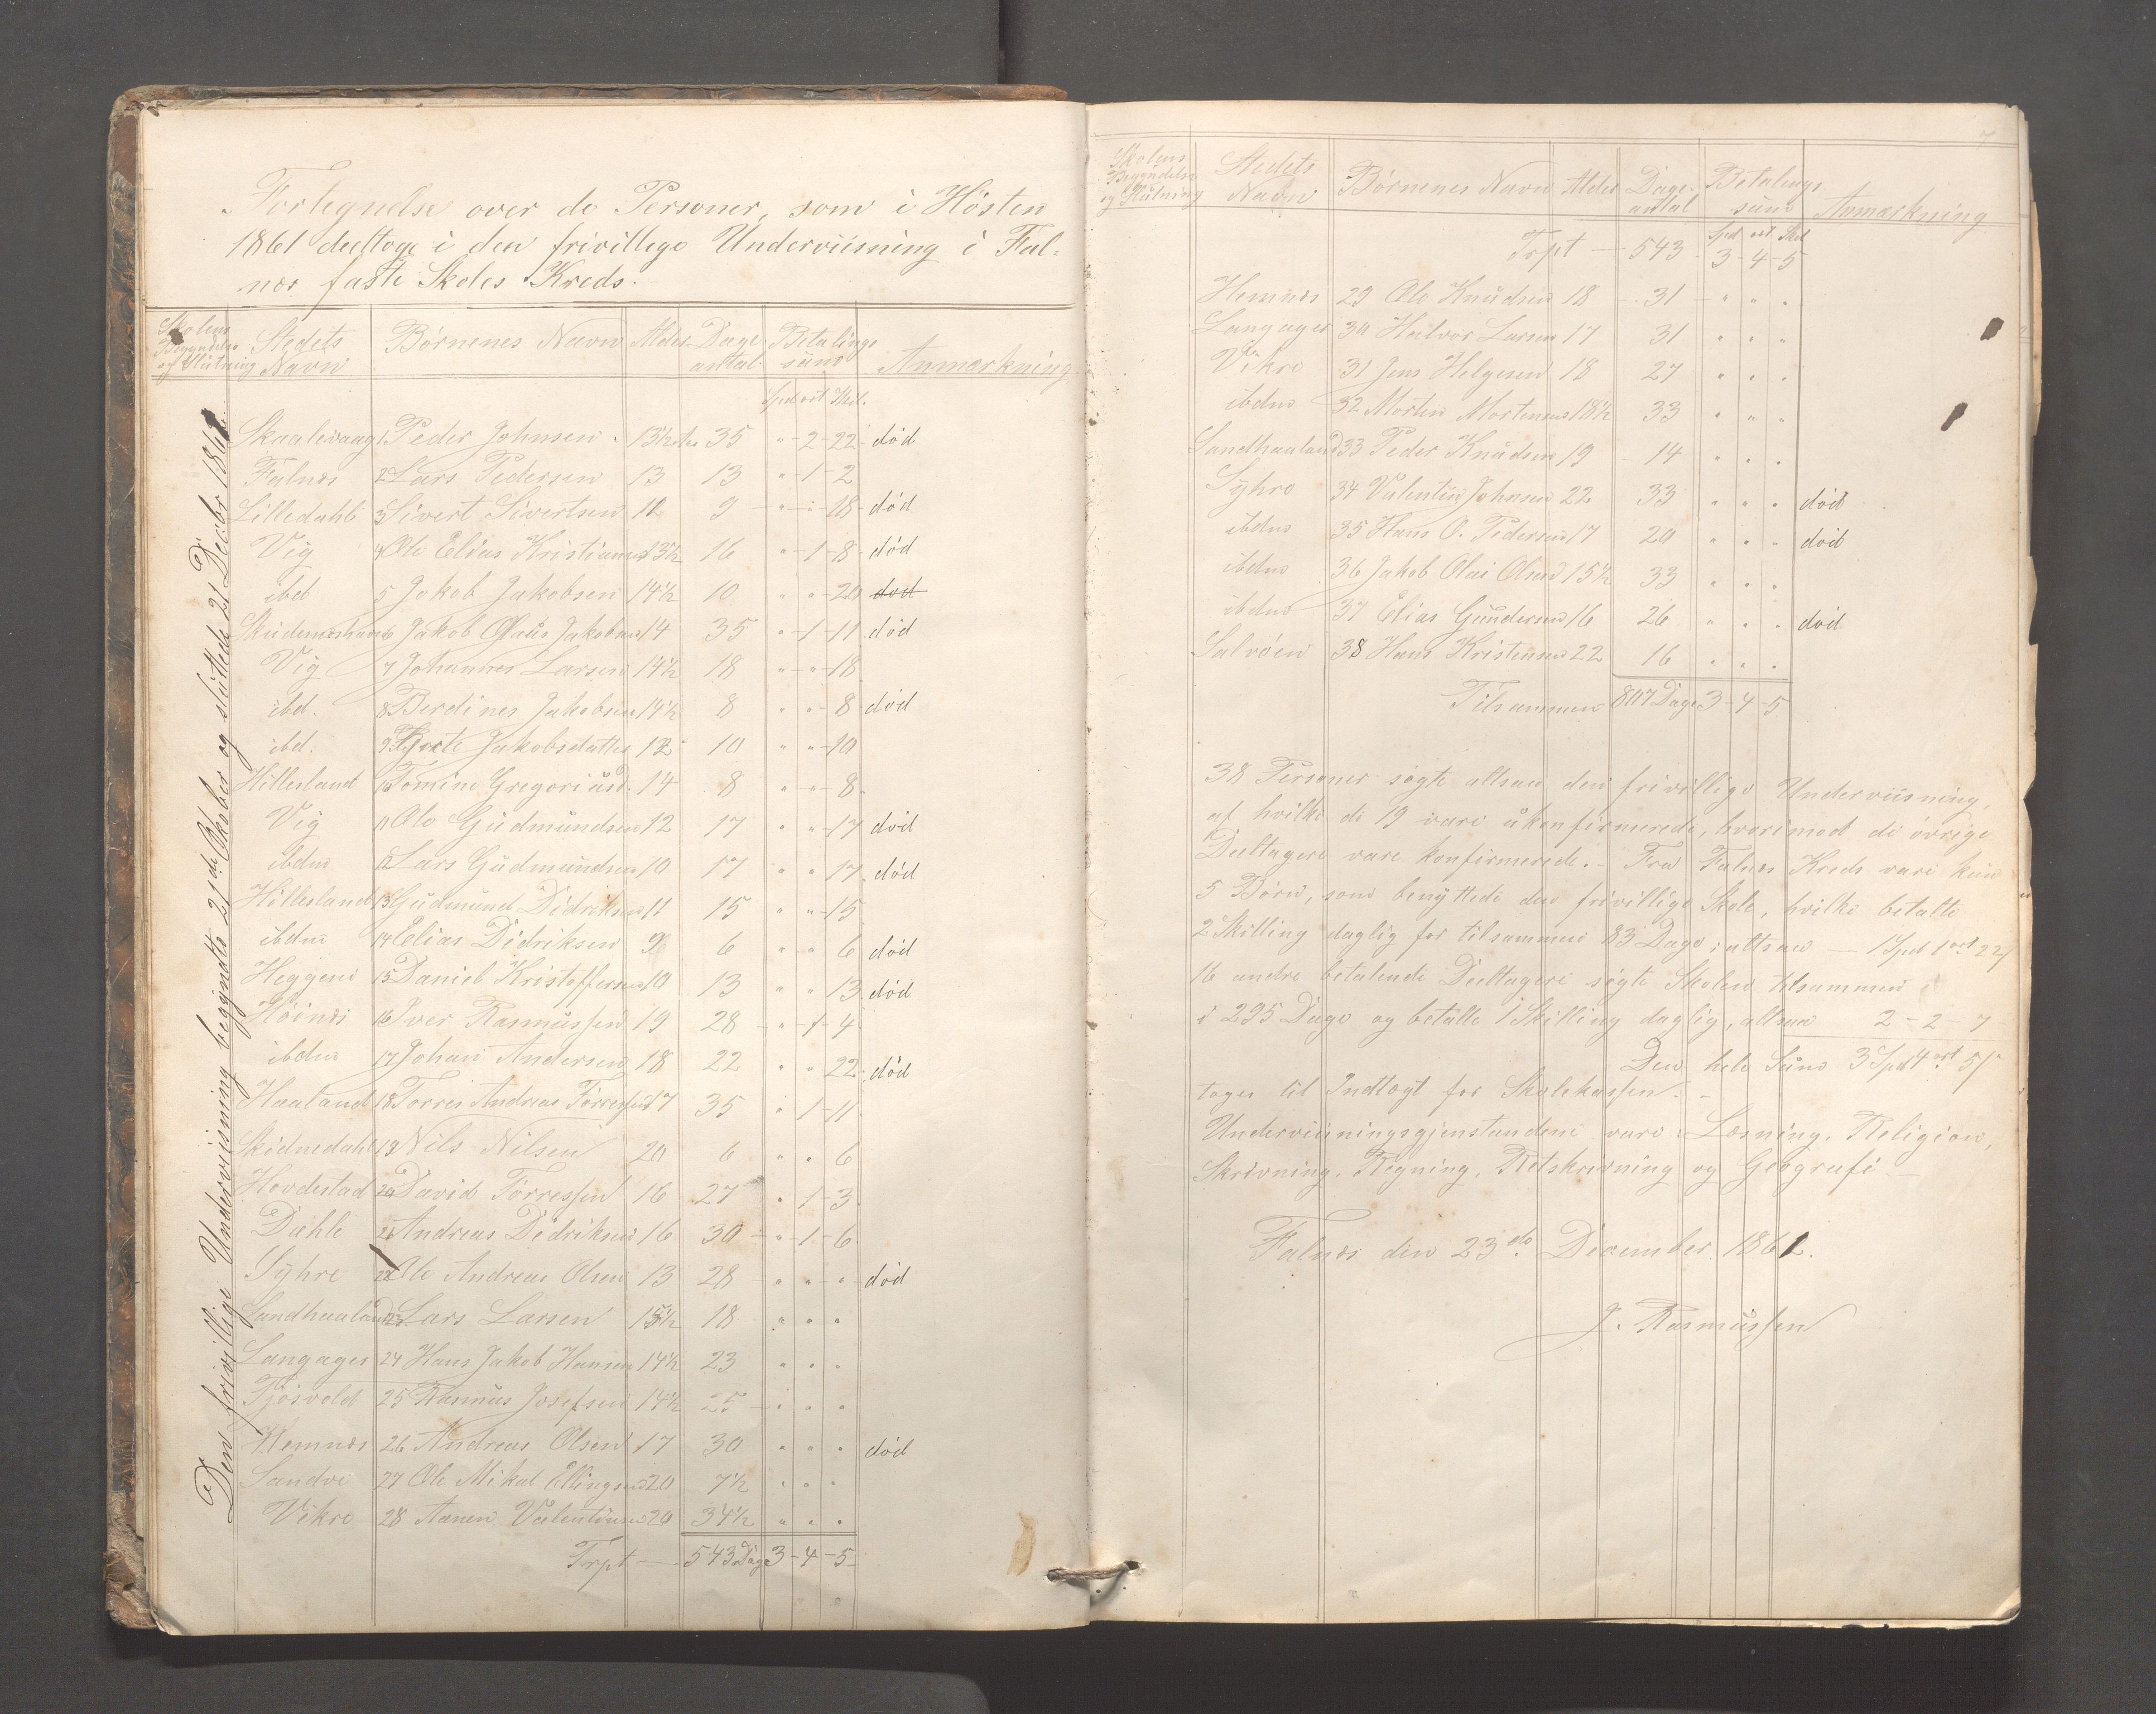 Fortegnelse over de Personer, som i Hösten
1861 deeltoge i den frivillige Underviisning i Fal-
næs faste Skoles Kreds.
Skolens Begyndelse og Slutning | Stedets Navn | Börnenes Navn | Alder | Dage antal | Betalings sum | Anmærkning
Spd ort Skl.
Den frivillige Underviisning begyndte 21de Oktober og sluttede 21 Decbr 1861.
Skaalevaag 1 Peder Johnsen 13½ 35 " - 2 - 22 död
Falnæs 2 Lars Pedersen 13 13 " - 1 - 2
Lilledahl 3 Sivert Sivertsen 12 9 " - " - 18 död
Vig 4 Ole Elias Kristiansen 13½ 16 " - 1 - 8 död
ibd 5 Jakob Jakobsen 14½ 10 " " - 20 död
Skudeneshavn 6 Jakob Olaus Jakobsen 14 35 " - 1 - 11 död
Vig 7 Johannes Larsen 14½ 18 " - " - 18
ibd. 8 Berdines Jakobsen 14½ 8 " " - 8 död
ibd. 9 Jakobsdatter 12 10 " " - 10
Hillesland 10 Tomine Gregoriusd. 14 8 " - " - 8
Vig 11 Ole Gudmundsen 12 17 " " - 17 död
ibdm 12 Lars Gudmundsen 10 17 " " - 17 död
Hillesland 13 Gudmund Didriksen 11 15 " " - 15
ibdm 14 Elias Didriksen 9 6 " " 6 död
Heggem 15 Daniel Kristoffersen 10 13 " " 13 död
Höines 16 Iver Rasmussen 19 28 " - 1 - 4
ibdm 17 Johan Andersen 18 22 " " 22 död
Haaland 18 Torres Andreas Torressen 17 35 " 1 - 11
Skidnedahl 19 Nils Nilsen 20 6 " " 6
Hovdestad 20 David Torressen 16 27 " 1 - 3
Dæhle 21 Andreas Didriksen 16 30 " - 1 - 6
Syhre 22 Ole Andreas Olsen 13 28 " " " död
Sandhaaland 23 Lars Larsen 15½ 18 " " "
Langager 24 Hans Jakob Hansen 14½ 23 " " "
Tjösvold 25 Rasmus Josefsen 14½ 25 " " "
Hemnæs 26 Andreas Olsen 17 30 " " " död
Sandve 27 Ole Mikal Ellingsen 20 7½ " " "
Vikre 28 Aanen Valentinsen 20 34½ " " "
Trpt — 543 Dage 3 - 4 - 5
7
Skolens Begyndelse og Slutning | Stedets Navn | Börnenes Navn | Alder | Dage antal | Betalings sum | Anmærkning
Spd ort Skl
Trpt — 543 3 - 4 - 5
Hemnæs 29 Ole Knudsen 18 31 " " "
Langager 30 Halvor Larsen 17 31 " " "
Vikre 31 Jens Helgesen 18 27 " " "
ibdm 32 Morten Mortensen 18½ 33 " " "
Sandhaaland 33 Peder Knudsen 19 14 " " "
Syhre 34 Valentin Johnsen 22 33 " " " död
ibdm 35 Hans O. Pedersen 17 20 " " " död
ibdm 36 Jakob Olai Olsen 15½ 33 " " "
ibdm 37 Elias Gundersen 16 26 " " " död
Salvöen 38 Hans Kristensen 22 16 " " "
Tilsammen 807 Dage 3 - 4 - 5
38 Personer sögte altsaa den frivillige Underviisning,
af hvilke de 19 vare ukonfirmerede, hvorimod de övrige
Deeltagere vare konfirmerede. - Fra Falnæs Kreds vare kun
5 Börn, som benyttede den frivillige Skole, hvilke betalte
2 Skilling daglig for tilsammen 83 Dage; altsaa — 1 Spd 1 ort 22/
16 andre betalende Deeltagere sögte Skolen tilsammen
i 295 Dage og betalte 1 Skilling daglig, altsaa 2 - 2 - 7
Den hele Sum 3 Spd 4 ort 5/
tages til Indtægt for Skolekassen. -
Underviisningsgjenstandene vare: Læsning, Religion,
Skrivning, Regning, Retskrivning og Geografi
Falnæs den 23de December 1861.
J. Rasmussen